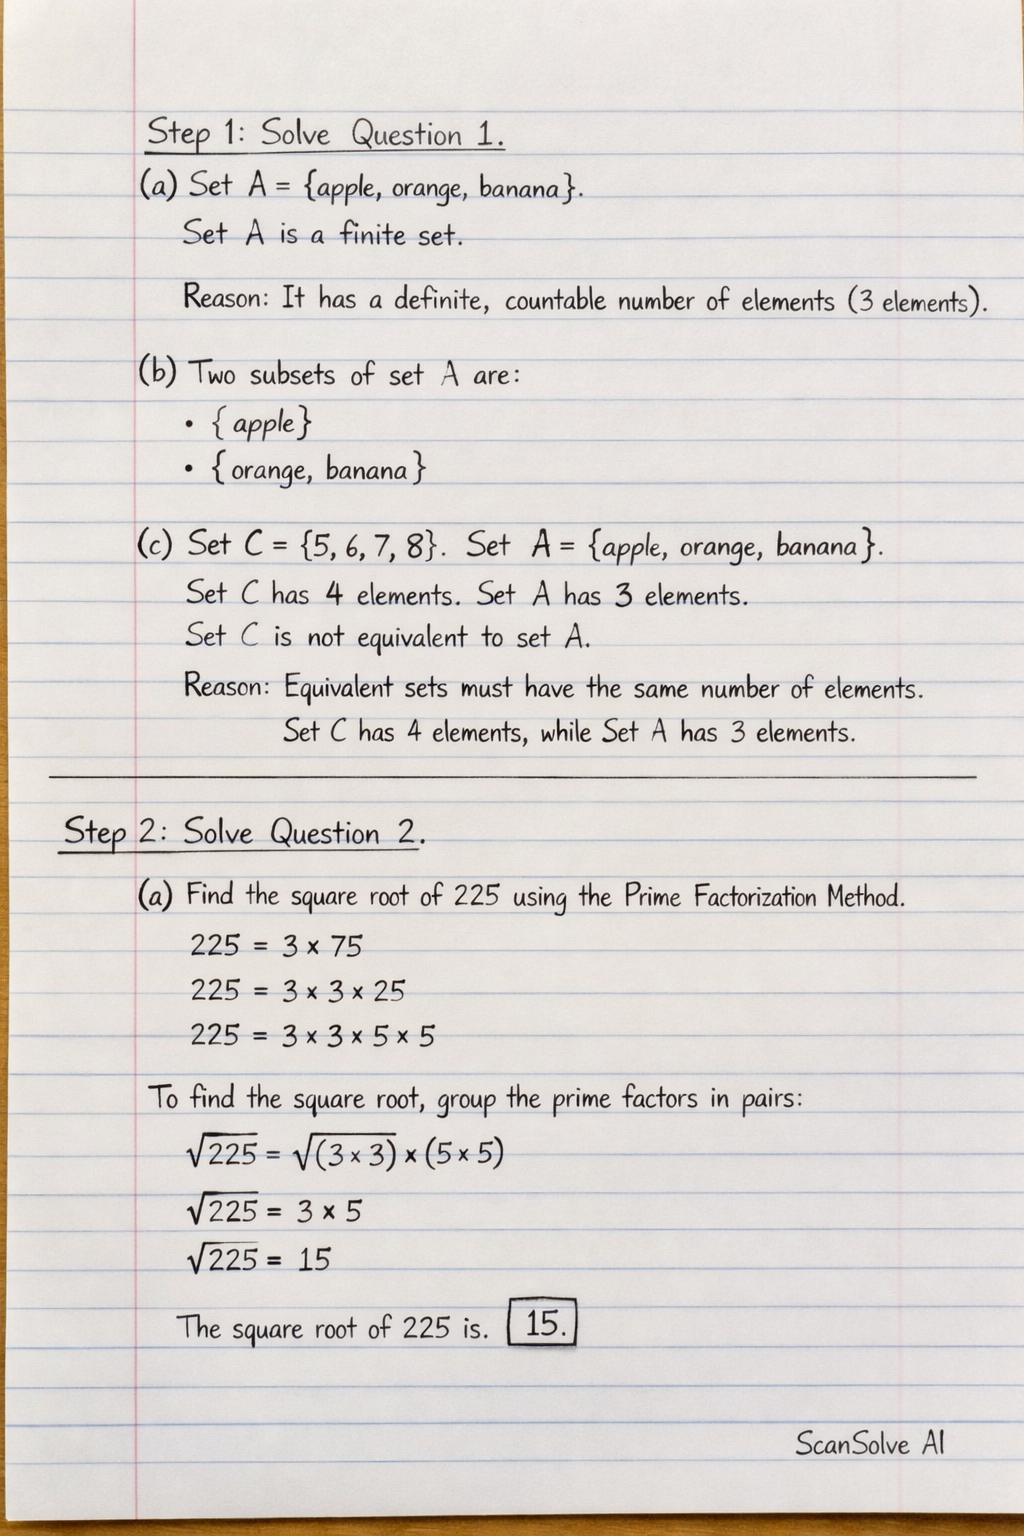 Step 1: Solve Question 1.
(a) Set A = {apple, orange, banana}.
Set A is a finite set.
Reason: It has a definite, countable number of elements (3 elements).
(b) Two subsets of set A are:
• {apple}
• {orange, banana}
(c) Set C = {5, 6, 7, 8}. Set A = {apple, orange, banana}.
Set C has 4 elements. Set A has 3 elements.
Set C is not equivalent to set A.
Reason: Equivalent sets must have the same number of elements.
Set C has 4 elements, while Set A has 3 elements.
Step 2: Solve Question 2.
(a) Find the square root of 225 using the Prime Factorization Method.
225 = 3 × 75
225 = 3 × 3 × 25
225 = 3 × 3 × 5 × 5
To find the square root, group the prime factors in pairs:
√225 = √(3 × 3) × (5 × 5)
√225 = 3 × 5
√225 = 15
The square root of 225 is. 15.
ScanSolve AI